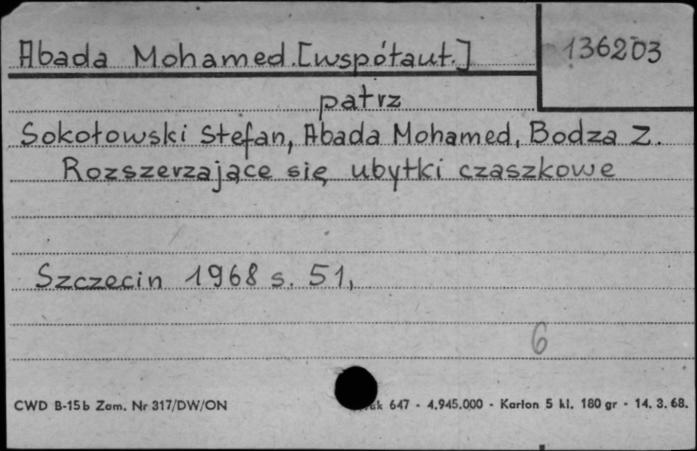 Abada Mohamed. [współaut.]
136203
patrz
Sokołowski Stefan, Abada Mohamed, Bodza Z.
Rozszerzające się ubytki czaszkowe
Szczecin 1968 s. 51,
6
CWD B-15b Zam. Nr 317/DW/ON 647 - 4.945.000 - Karton 5 kl. 180 gr - 14. 3. 68.